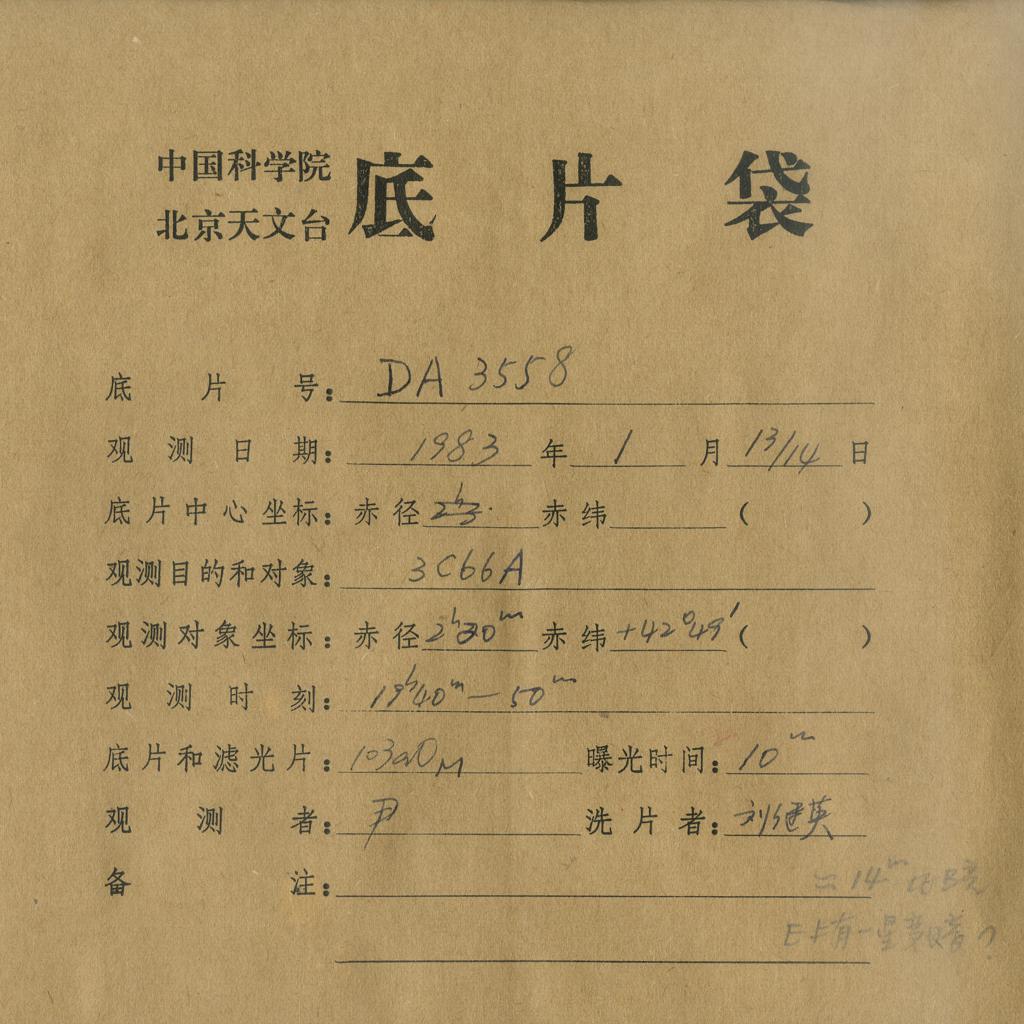 中国科学院
北京天文台 底片袋
底片号： DA 3558
观测日期： 1983 年 1 月 13/14 日
底片中心坐标：赤径 2ʰ3 赤纬 （ ）
观测目的和对象： 3C66A
观测对象坐标：赤径 2ʰ30ᵐ 赤纬 +42°49′（ ）
观测时刻： 19ʰ40ᵐ—50ᵐ
底片和滤光片： 103aO 曝光时间： 10ᵐ
观测者： 尹 洗片者： 刘继英
备注：
14ᵐ 比B亮
上有一星